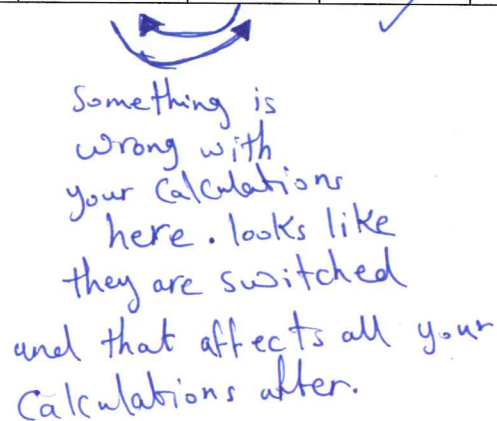 Something is
wrong with
your Calculations
here. looks like
they are switched
and that affects all your
Calculations after.